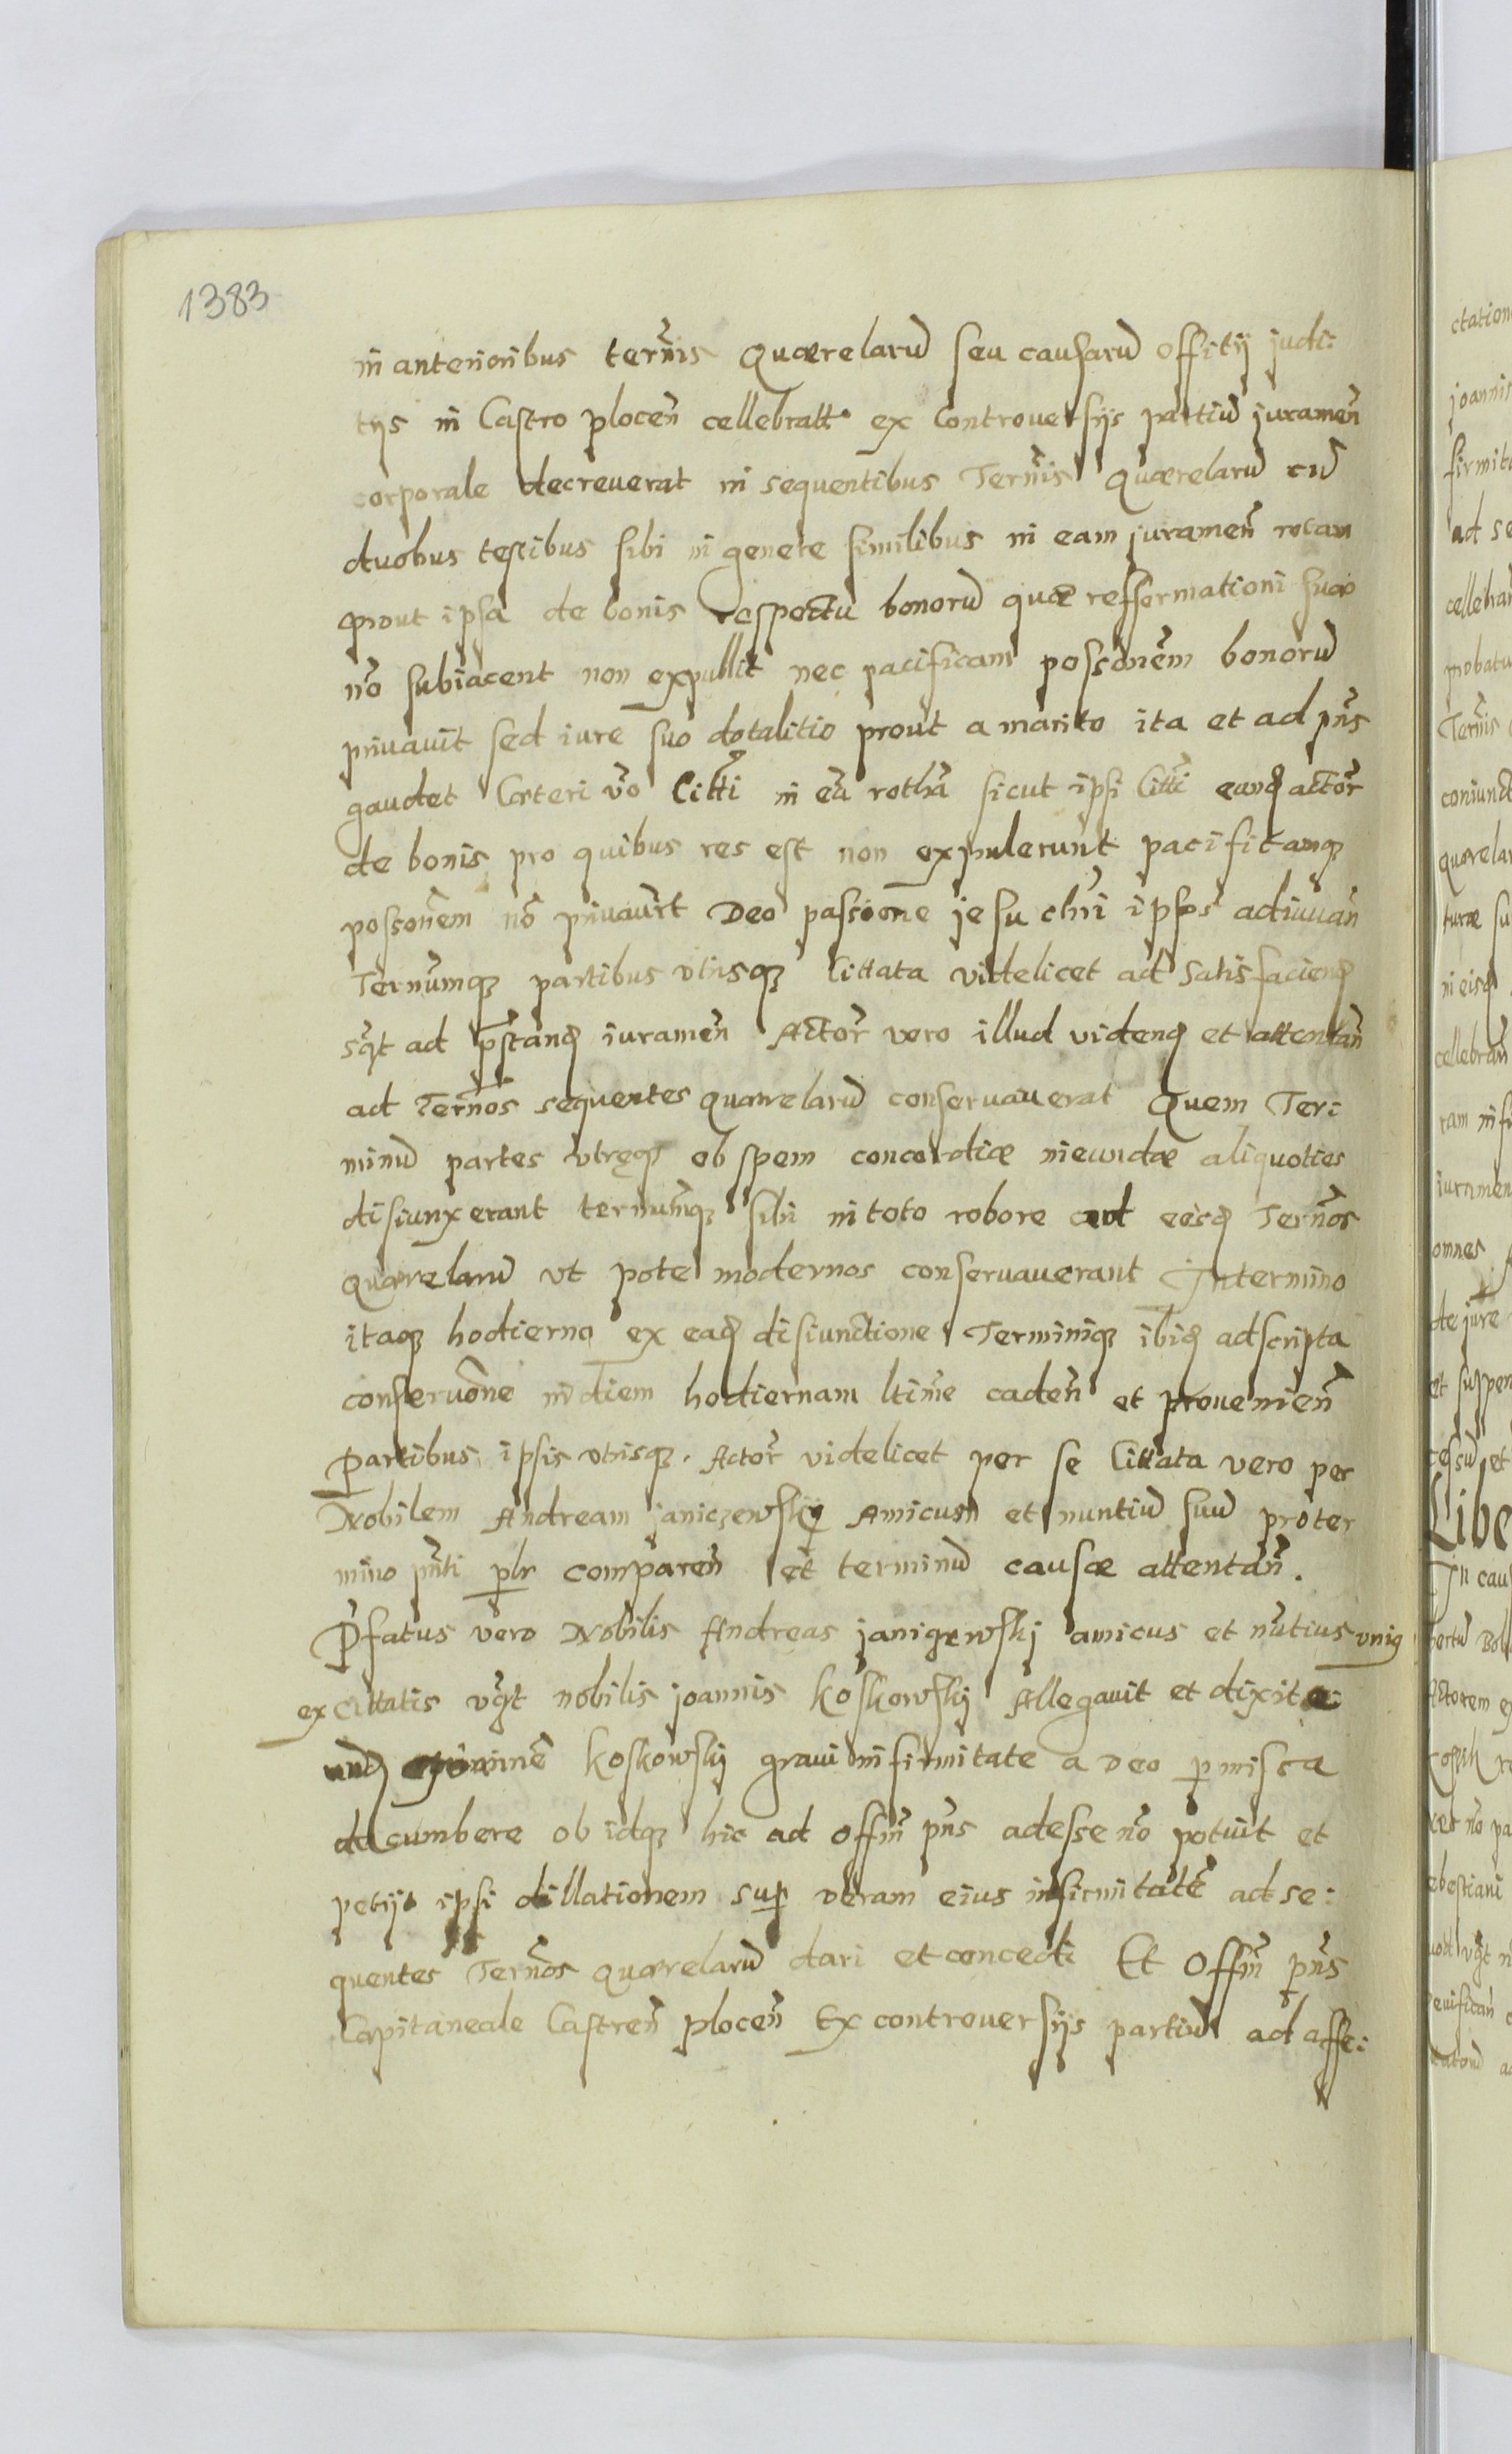 1383
in anterioribus term̃is Quærelarũ seu causarũ offitij judi:
tijs in Castro plocen̄ cellebratt. ex Controuersijs partiũ juramen̄
corporale decreuerat in sequentibus Term̃is Quærelarũ cũ
duobus testibus sibi in genere similibus in eam juramen̄ rotam
prout ipsa de bonis respectu bonorũ quæ refformationi suæ
nõ subiacent non expullit nec pacificam possõnẽm bonorũ
priuauit sed iure suo dotalitio prout a marito ita et ad pñs
gaudet Cæteri v̄o Citti in eã rothã sicut ipsi Citti eanḑ actor̃
de bonis pro quibus res est non expulerunt pacificamqȝ
possonẽm nõ priuaur̃t Deo passione jesu chr̃i ipsos adiuuan̄
Termũmqȝ partibus vtrisqȝ Cittata videlicet ad satisfacienḑ
sq̃t ad p̄standḑ iuramen̄ Actor̃ vero illud videnḑ et attentan̄
ad Term̃os sequentes quærelarũ conseruauerat Quem Ter:
minũ partes vtręqȝ ob spem concordiæ nieundæ aliquoties
disiunxerant termũmqȝ sibi in toto robore ad eosḑ Term̃os
quærelarũ vt pote modernos conseruauerant In termino
itaqȝ hodierno ex eaḑ disiunctione Terminiqȝ ibiḑ adscripta
conseruõne in diem hodiernam ltim̃e caden̄ et prouenien̄
Partibus ipsis vtrisqȝ. Actor̃ videlicet per se Cittata vero per
Nobilem Andream janiczewskij Amicum et nuntiũ suũ pro ter
mino pñti plr̃ comparen̄ et terminũ causæ attentan̄.
Pr̃fatus vero Nobilis Andreas janiczewskj amicus et nũtius vniꝰ
ex Cittatis vq̃t nobilis joannis koskowskj Allegauit et dixit e:
unḑ koskowskj graui infirmitate a Deo p̱missa
decumbere ob idqȝ hic ad offm̃ pñs adesse nõ potuit et
petijt ipsi dillationem sup̱ veram eius infirmitatẽ ad se:
quentes Term̃os quærelarũ dari et concedi Et Offm̃ pñs
Capitaneale Castren̄ plocen̄ Ex controuersijs partiũ ad affe: